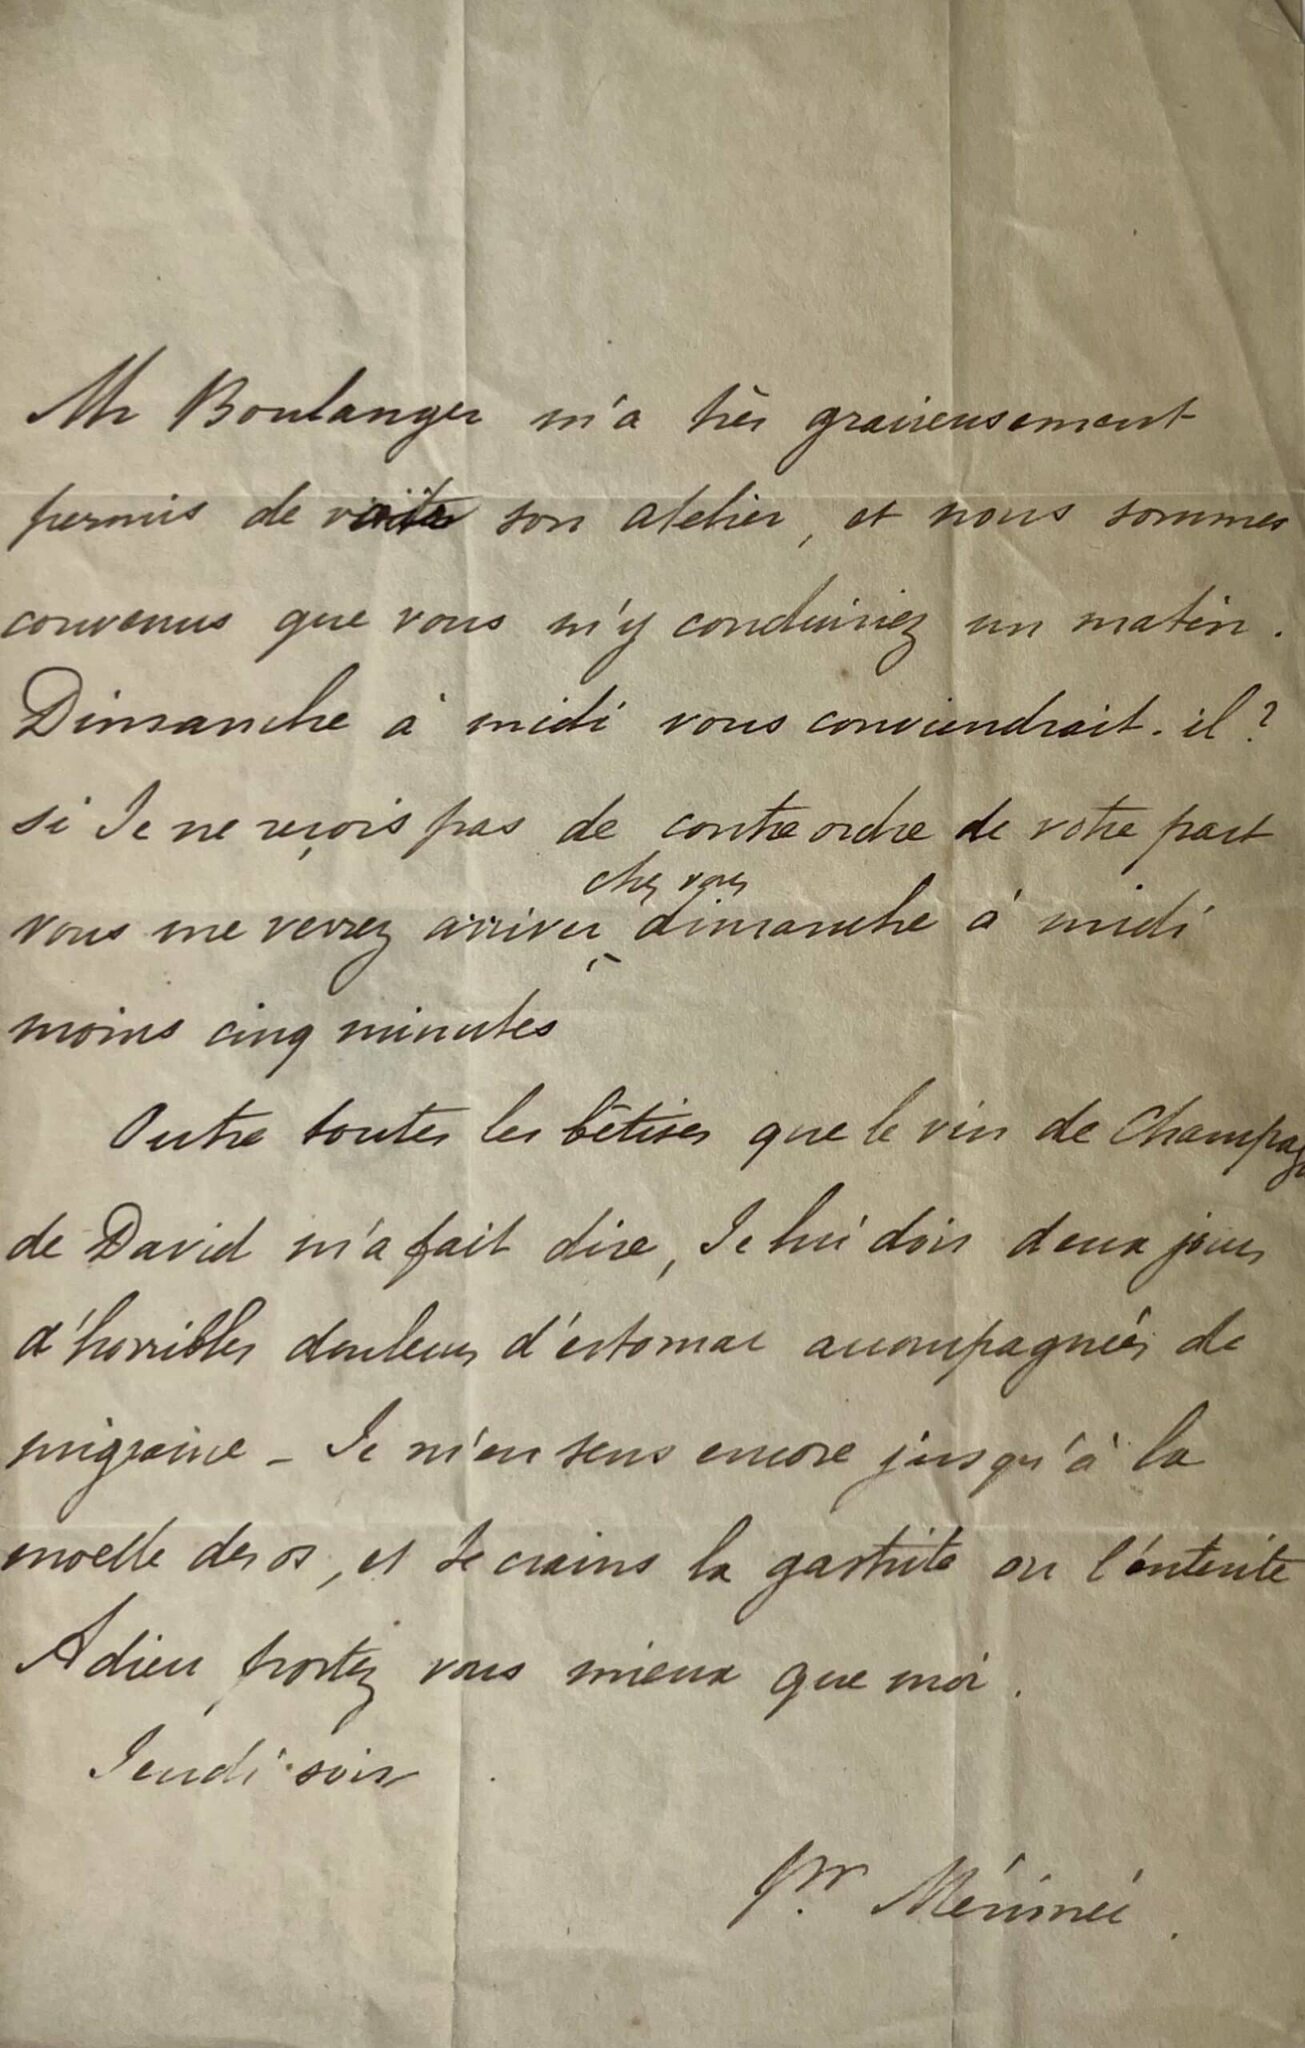 Mr Boulanger m'a très gracieusement
permis de visiter son atelier, et nous sommes
convenus que vous m'y conduiriez un matin.
Dimanche à midi vous conviendrait-il ?
si Je ne reçois pas de contre ordre de votre part
chez vous
vous me verrez arriver dimanche à midi
moins cinq minutes
Outre toutes les bêtises que le vin de Champag
de David m'a fait dire, Je lui dois deux jours
d'horribles douleurs d'estomac accompagnées de
migraine - Je m'en sens encore jusqu'à la
moelle des os, et Je crains la gastrite ou l'entérite
Adieu portez vous mieux que moi.
Jeudi soir
Pr. Mérimée.